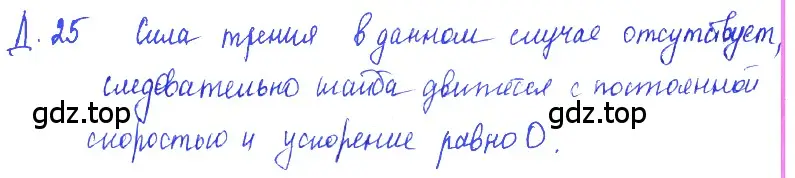 Д. 25 Сила трения в данном случае отсутствует,
следовательно шайба движется с постоянной
gdz.top gdz.top
скоростью и ускорение равно 0.